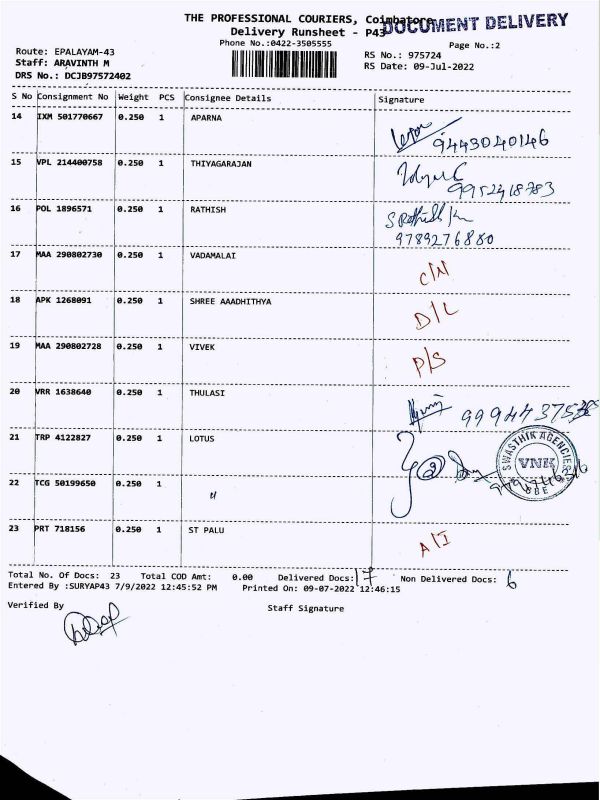 THE PROFESSIONAL COURIERS, Coimbatore
DOCUMENT DELIVERY
Delivery Runsheet - P43
Phone No.:0422-3505555
Page No.:2
Route: EPALAYAM-43
Staff: ARAVINTH M
DRS No.: DCJB97572402
RS No.: 975724
RS Date: 09-Jul-2022
S No Consignment No Weight PCS Consignee Details Signature
14 IXM 501770667 0.250 1 APARNA
9443040146
15 VPL 214400758 0.250 1 THIYAGARAJAN
9952418783
16 POL 1896571 0.250 1 RATHISH
9789276880
17 MAA 290802730 0.250 1 VADAMALAI C/N
18 APK 1268091 0.250 1 SHREE AAADHITHYA D/L
19 MAA 290802728 0.250 1 VIVEK P/S
20 VRR 1638640 0.250 1 THULASI
21 TRP 4122827 0.250 1 LOTUS
SWASTHIK AGENCIES
VNK
CBE
22 TCG 50199650 0.250 1 "
23 PRT 718156 0.250 1 ST PALU A/I
Total No. Of Docs: 23 Total COD Amt: 0.00 Delivered Docs: 17 Non Delivered Docs: 6
Entered By :SURYAP43 7/9/2022 12:45:52 PM Printed On: 09-07-2022 12:46:15
Verified By Staff Signature